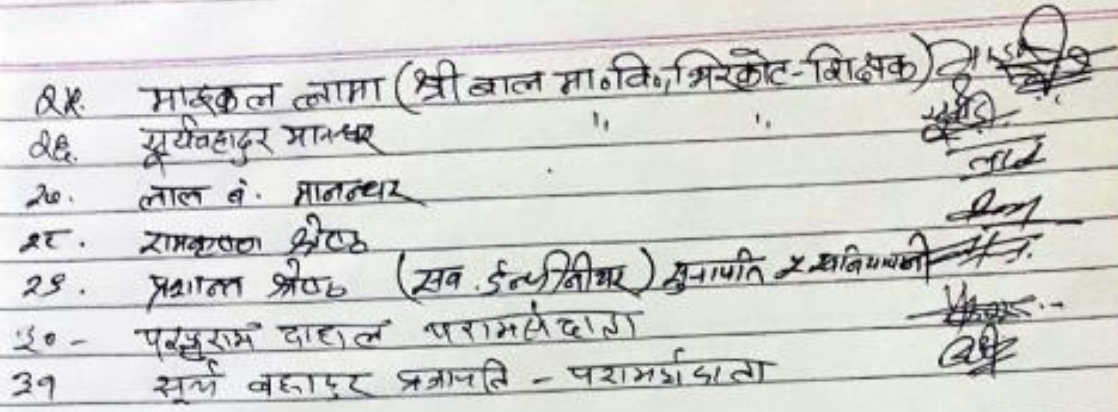 २५. माइकल लामा (श्री बाल मा०वि०, भिरकोट - शिक्षक)
२६. सूर्यवहादुर मानन्धर " "
२७. लाल बं. मानन्धर
२८. रामकृष्ण श्रेष्ठ
२९. प्रशान्त श्रेष्ठ (सव. ईन्जीनीयर)
३०- परशुराम दाहाल परामर्शदाता
३१ सूर्य बहादुर प्रजापति - परामर्शदाता